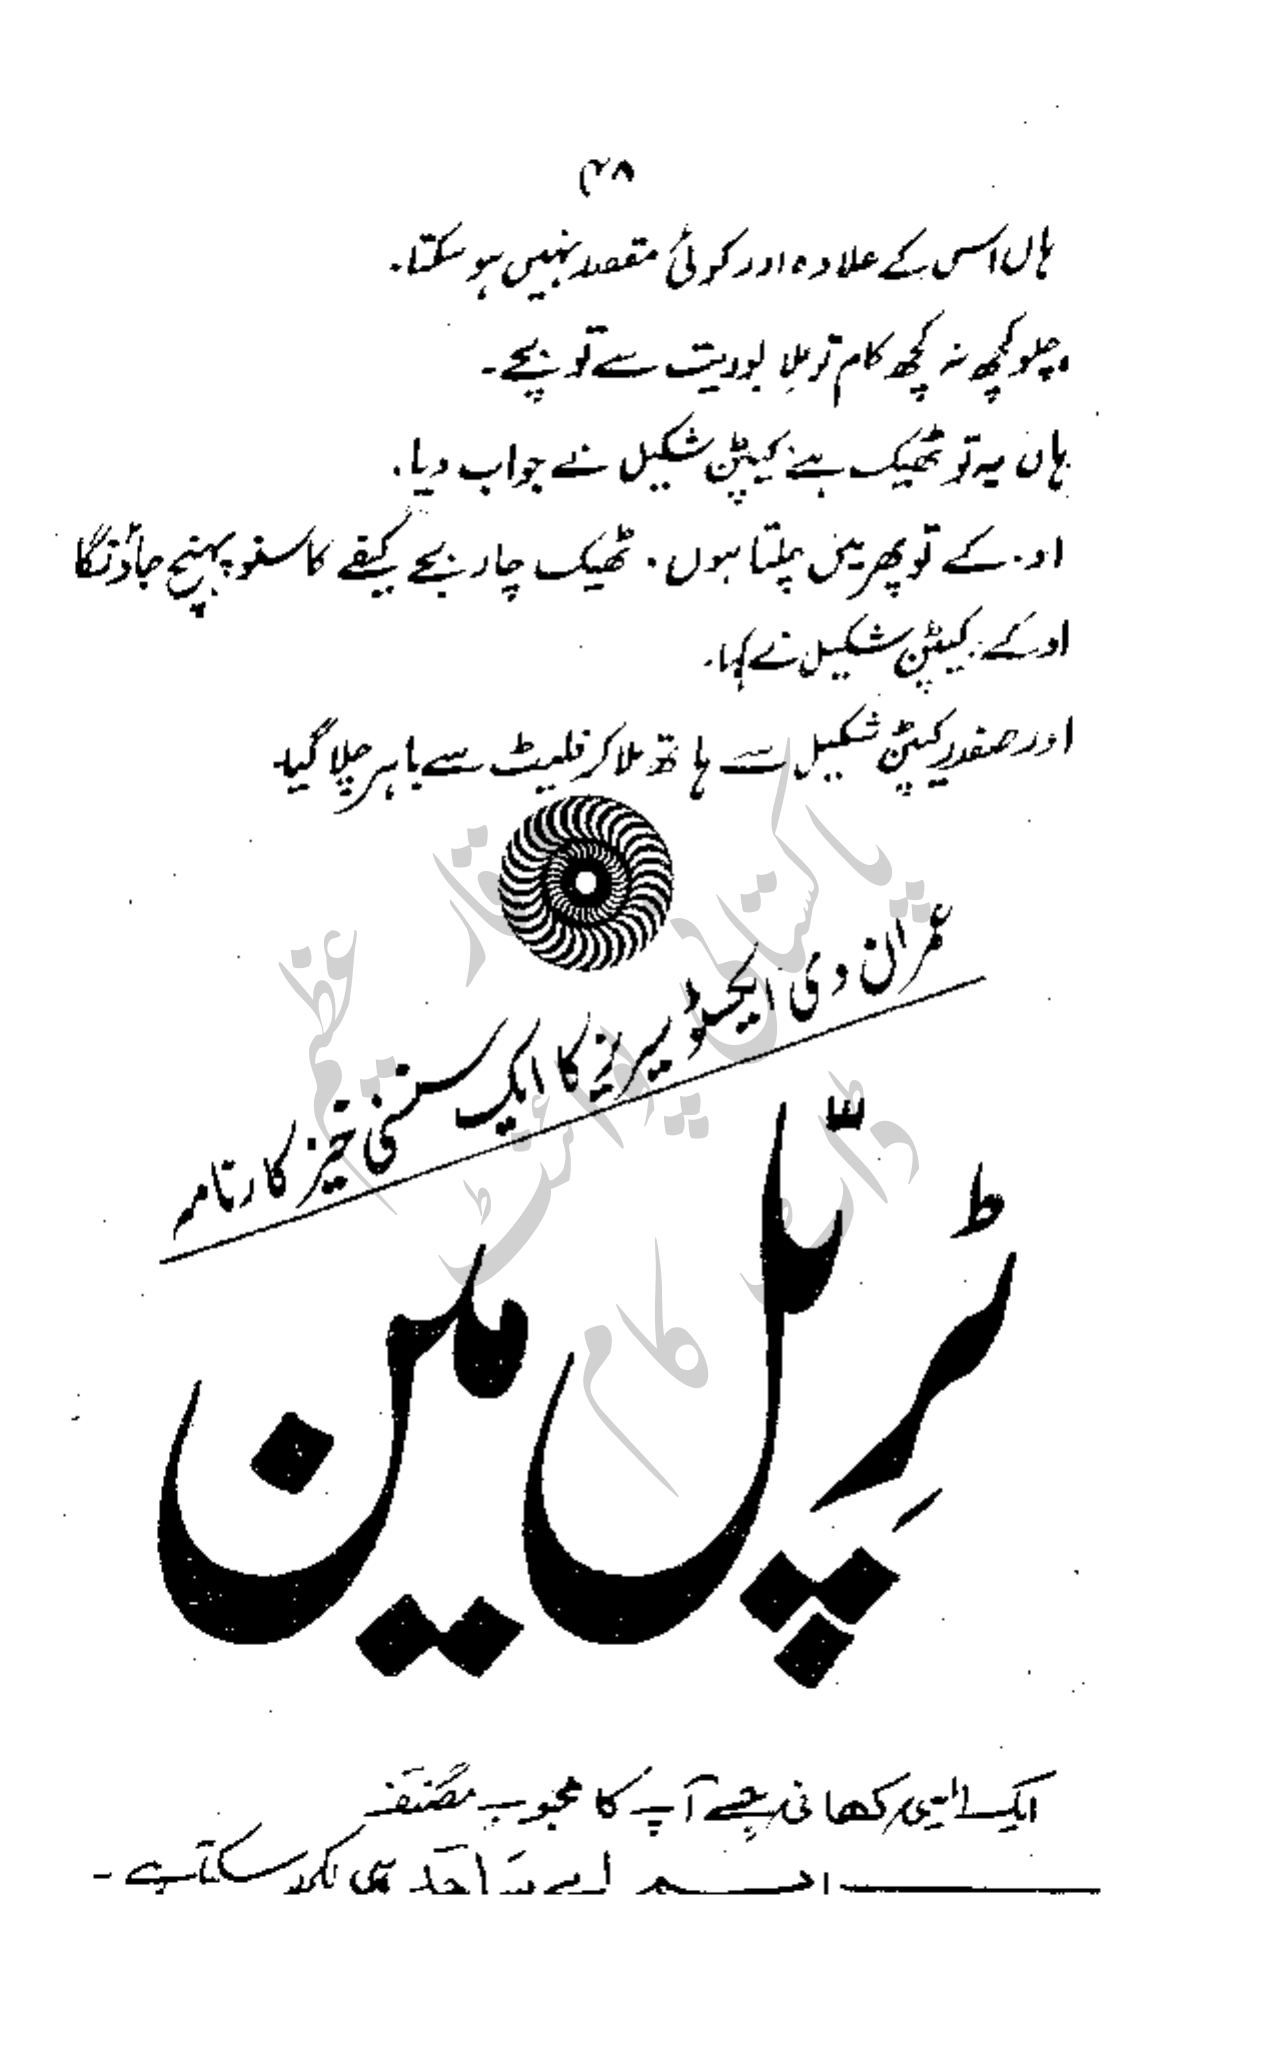 ۴۸
ہاں اس کے علاوہ اور کوئی مقصد نہیں ہو سکتا۔
چلو کچھ نہ کچھ کام تو ملا بوریت سے تو بچے۔
ہاں یہ تو ٹھیک ہے۔ کیپٹن شکیل نے جواب دیا۔
او۔ کے تو پھر میں چلتا ہوں۔ ٹھیک چار بجے کیفے کاسنو پہنچ جاؤنگا
او کے۔ کیپٹن شکیل نے کہا۔
اور صفدر کیپٹن شکیل سے ہاتھ ملا کر فلیٹ سے باہر چلا گیا۔
عمران دی ایکسٹو سیریز کا ایک سنسنی خیز کارنامہ
ٹرِپّل مین
ایک ایسی کھانی جسے آپ کا محبوب مصنف
ایم اے ساجد ہی لکھ سکتا ہے۔
پاکستانی پوائنٹ ڈاٹ کام